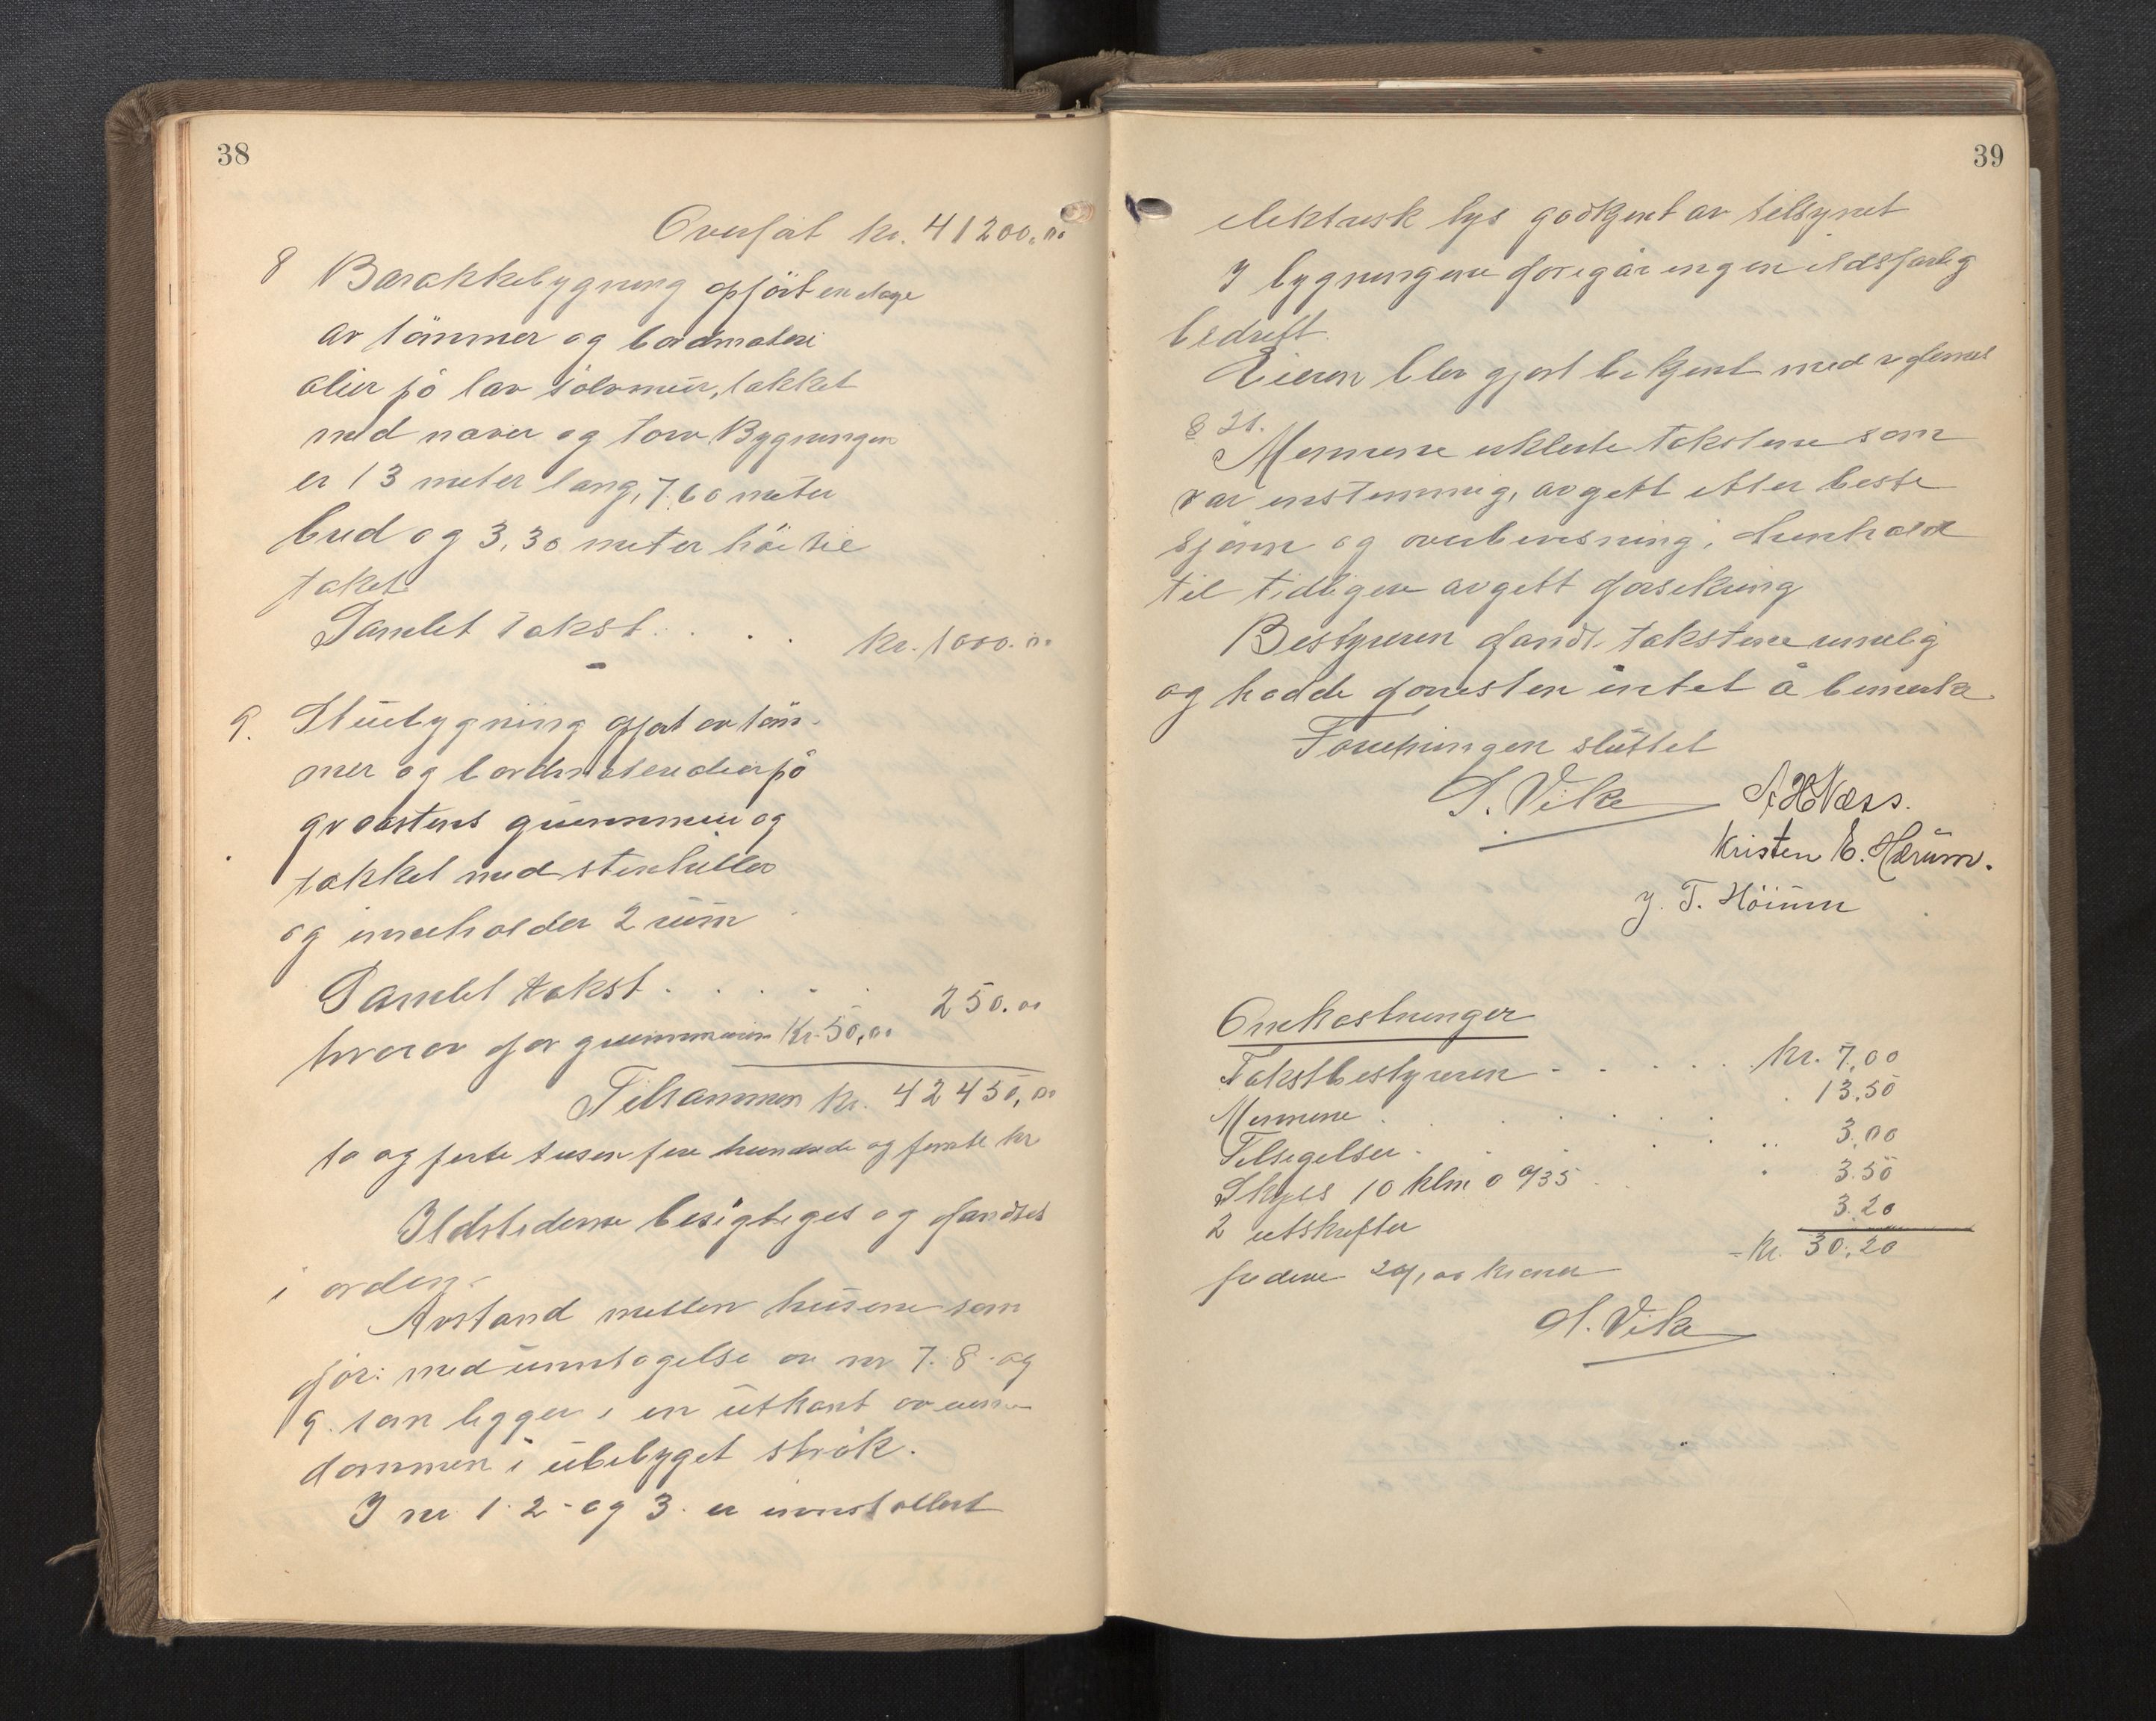 38
Overført kr. 41200.00
8 Barakkebygning opført en etage
av tömmer og bordmateri
alier på lav sålvmur, takket
med næver og torv. Bygningen
er 13 meter lang, 7.60 meter
bred og 3.30 meter höi til
taket
Samlet takst . . . kr. 1000.00
9. Stuebygning opført av töm-
mer og bordmaterialier på
graastens grunnmur og
takket med stenheller
og inneholder 2 rum
Samlet takst . . . . . 250.00
hvorav for grunnmuren Kr. 50,00
Tilsammen kr. 42450,00
to og førte tusen fire hundrede og femti kr
Ildstederne besigtiges og fandtes
i orden.
Avstand mellem husene som
før: med unntagelse av nr 7. 8. og
9. som ligger i en utkant av eien
dommen i ubebygget strök.
I nr 1. 2 - og 3. er innstallert
39
elektrisk lys godkjent av tilsynet
I bygningene foregår ingen ildsfarlig
bedrift.
Eieren blev gjort bekjent med
§ 21.
Mennene erklerte takstene som
var enstemmig, avgett etter beste
skjønn og overbevisning i henhold
til tidligere avgett forsikring
Bestyreren fandt takstene rimelig
og hadde foresten intet å bemerke
Forretningen sluttet
S. Vike A H Næss.
Kristen E. Hærum.
J. T. Höinn
Omkostninger
Takstbestyreren . . . . . kr. 7,00
Mennene . . . . . 13,50
Tilsigelser . . . . 3.00
Skyss 10 klm a 0/35 . . . 3.50
2 utskrifter 3.20
- Kr. 30,20
kroner
S. Vike